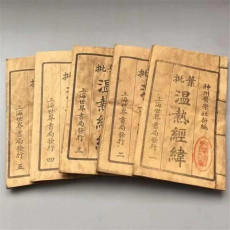 神州醫學社新編
葉批
温熱經緯
上海世界書局發行 一
批
上海世界書局發行 二
批
温熱經緯
上海世界書局發行 三
批
上海世界書局發行 四
批
上海世界書局發行 五